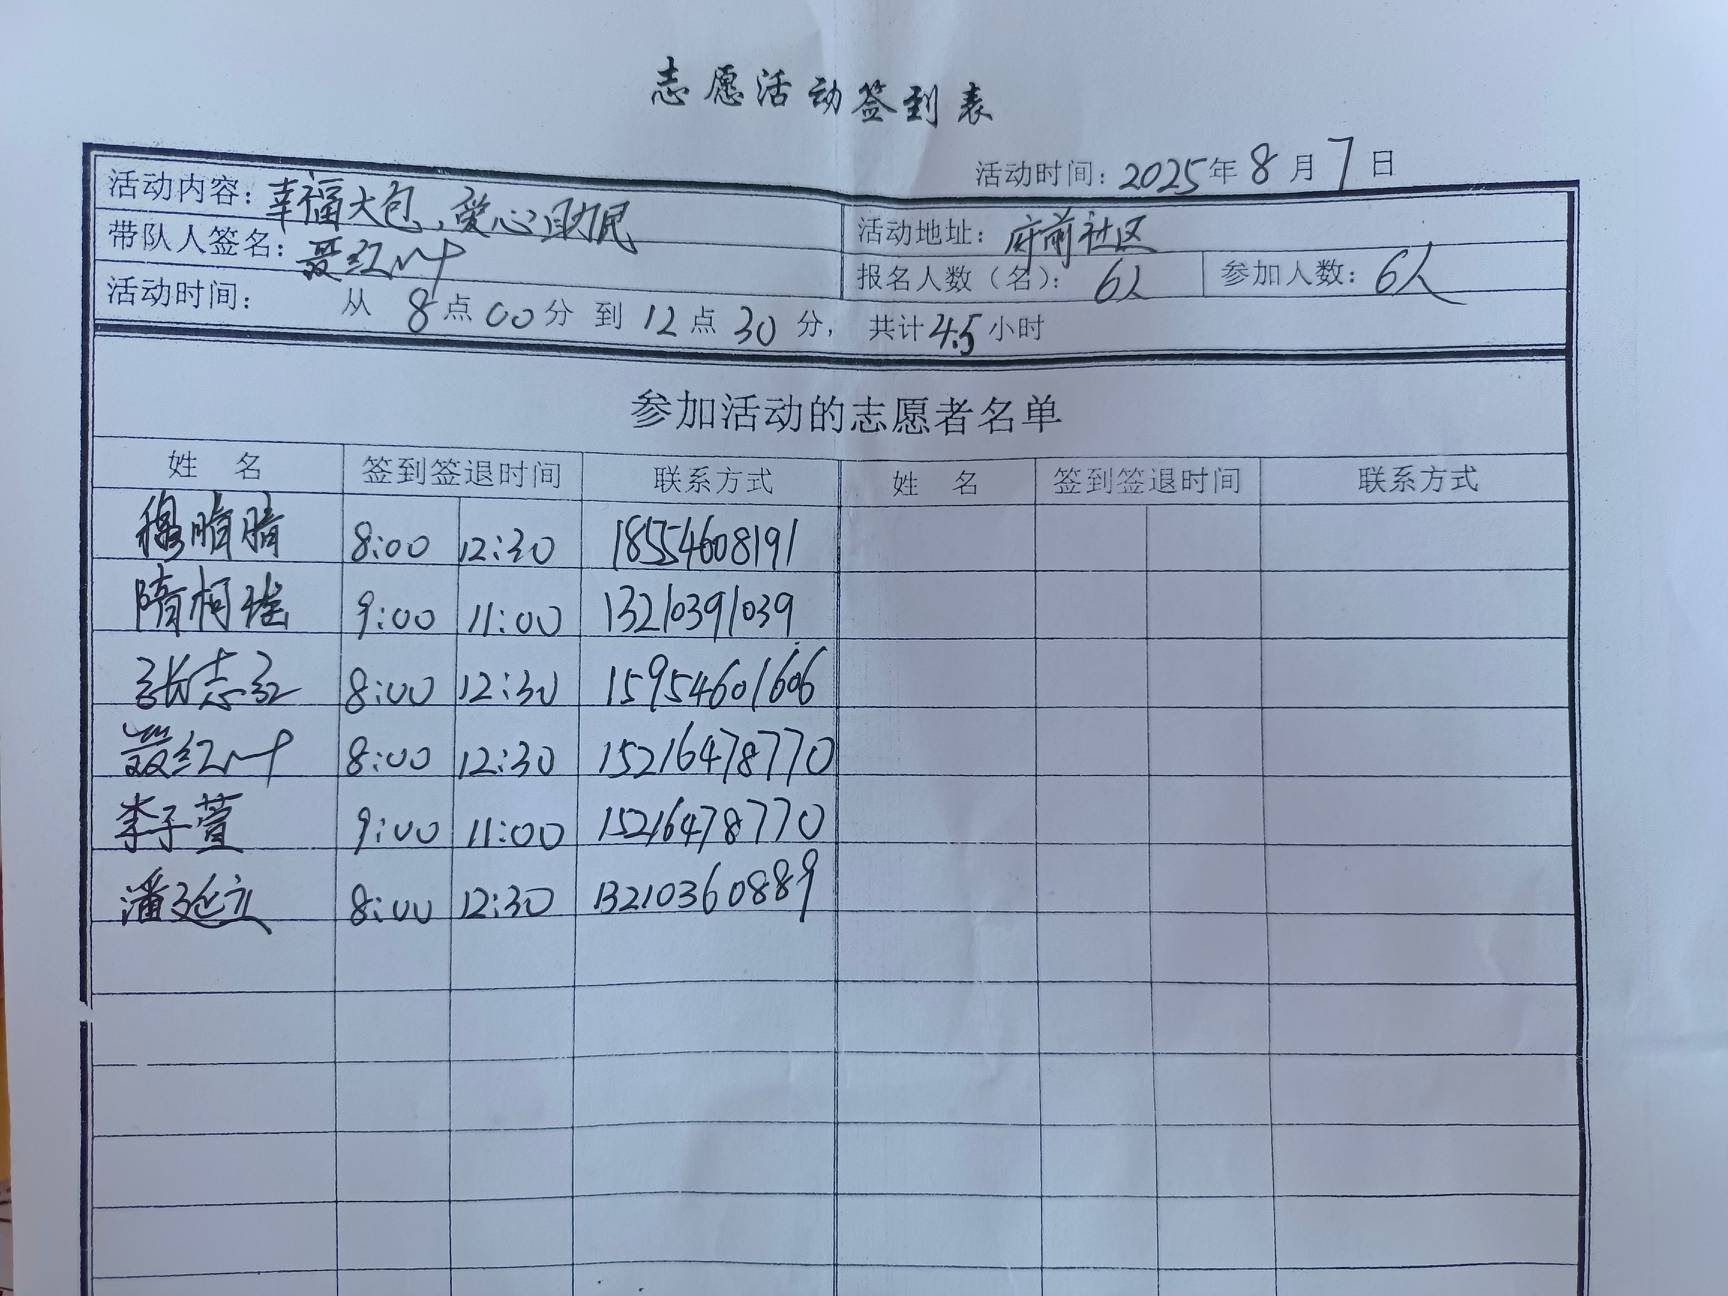 志愿活动签到表
活动时间：2025年8月7日
活动内容：幸福大包，爱心助民
活动地址：府前社区
带队人签名：聂红叶
报名人数（名）：6人 参加人数：6人
活动时间： 从 8点00分 到 12点30分， 共计4.5小时
参加活动的志愿者名单
姓 名 签到签退时间 联系方式 姓 名 签到签退时间 联系方式
穆腈腈 8:00 12:30 18554608191
隋柯瑶 9:00 11:00 13210391039
张志 8:00 12:30 15954601606
聂红叶 8:00 12:30 15216478770
李子萱 9:00 11:00 15216478770
潘延立 8:00 12:30 13210360889